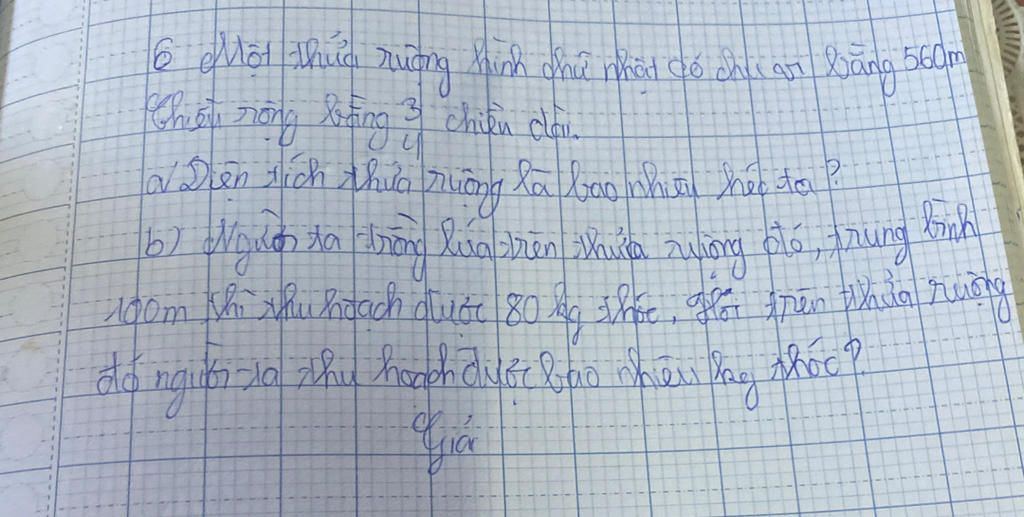 6 Một thửa ruộng hình chữ nhật có chu vi bằng 560m
Chiều rộng bằng 3/4 chiều dài.
a) Diện tích thửa ruộng là bao nhiêu héc ta?
b) Người ta trồng lúa trên thửa ruộng đó, trung bình
100m thì thu hoạch được 80 kg thóc, hỏi trên thửa ruộng
đó người ta thu hoạch được bao nhiêu kg thóc?
Giải